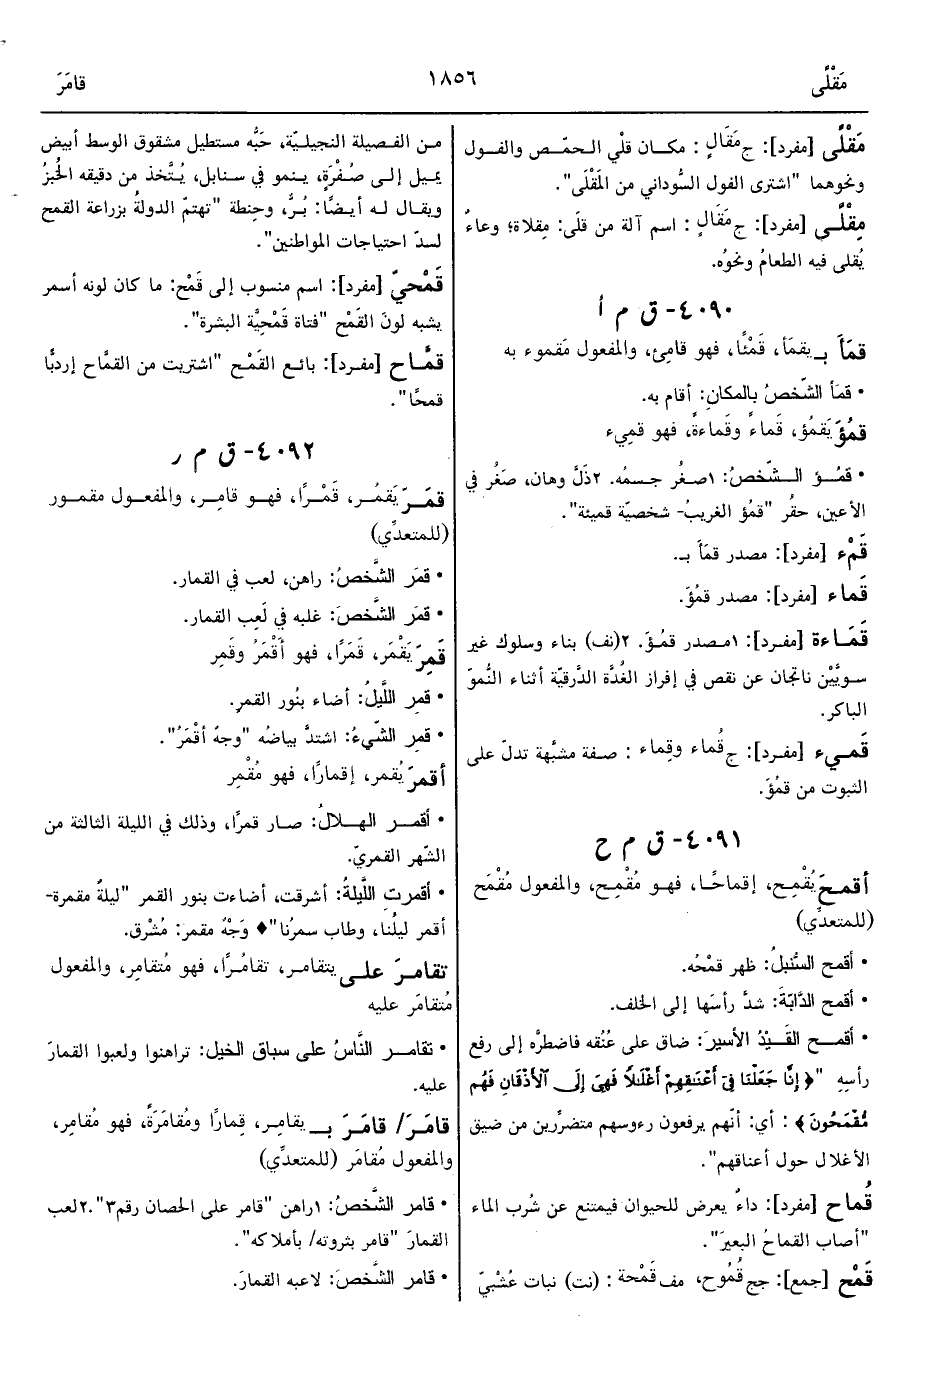 مَقْلًى
١٨٥٦
قامَرَ
مَقْلًى [مفرد]: ج مَقَالٍ : مكـان قلْي الـحمّـص والفـول
ونحوهما "اشترى الفول السُّوداني من المَقْلَى".
مِقْلًـى [مفرد]: ج مَقَالٍ : اسم آلة من قلَى: مِقلاة؛ وعاءٌ
يُقلى فيه الطعامُ ونحوُه.
٤٠٩٠- ق م أ
قمَأَ بـ يقمَأ، قَمْئًا، فهو قامِئ، والمفعول مَقموء به
• قمَأ الشّخصُ بالمكانِ: أقام به.
قمُؤَ يَقمُؤ، قَماءً وقَماءةً، فهو قمِيء
• قمُـؤ الـشّخصُ: ١صغُر جسمُه. ٢ذَلَّ وهان، صَغُر في
الأعين، حقُر "قمُؤ الغريبُ- شخصيّة قميئة".
قَمْء [مفرد]: مصدر قمَأَ بـ.
قَماء [مفرد]: مصدر قمُؤَ.
قَمَـاءة [مفـرد]: ١مـصدر قمُـؤَ. ٢(نف) بناء وسلوك غير
سـويَّيْن ناتجان عن نقص في إفراز الغُدَّة الدَّرقيّة أثناء النُّموّ
الباكر.
قَمـيء [مفـرد]: ج قُماء وقِماء : صـفة مشبَّهة تدلّ على
الثبوت من قمُؤَ.
٤٠٩١- ق م ح
أقمحَ يُقْمِح، إقماحًـا، فهـو مُقْمِـح، والمفعول مُقْمَح
(للمتعدِّي)
• أقمح السُّنبلُ: ظهر قمْحُه.
• أقمح الدَّابّةَ: شدَّ رأسَها إلى الخلف.
• أقمـح القَـيْدُ الأسيرَ: ضاق على عُنُقه فاضطرَّه إلى رفع
رأسِهِ "﴿ إِنَّا جَعَلْنَا فِي أَعْنَـٰقِهِمْ أَغْلَـٰلًا فَهِيَ إِلَى ٱلْأَذْقَانِ فَهُم
مُّقْمَحُونَ ﴾ : أي: أنّهم يرفعون رءوسهم متضرَّرين من ضيق
الأغلال حول أعناقهم".
قُماح [مفرد]: داءٌ يعرض للحيوان فيمتنع عن شُرب الماء
"أصاب القماحُ البعيرَ".
قَمْح [جمع]: جج قُمُوح، مف قَمْحة : (نت) نبات عُشْبيّ
مـن الفـصيلة النجيليّـة، حَبُّه مستطيل مشقوق الوسط أبيض
يميل إلـى صُفْرَةٍ، ينمو في سنابل، يُتَّخذ من دقيقه الخُبزُ
ويقال لـه أيـضًا: بُـرُّ، وحِنطة "تهتمّ الدولةُ بزراعة القمح
لسدّ احتياجات المواطنين".
قَمْحيّ [مفرد]: اسم منسوب إلى قَمْح: ما كان لونه أسمر
يشبه لونَ القَمْح "فتاة قَمْحيَّة البشرة".
قمَّـاح [مفـرد]: بائـع القَمْـح "اشتريت من القمَّاح إردبًّا
قمحًا".
٤٠٩٢- ق م ر
قمَـرَ يَقمُـر، قَمْـرًا، فهـو قامِـر، والمفعـول مقمـور
(للمتعدِّي)
• قمَر الشَّخصُ: راهن، لعب في القمار.
• قمَر الشَّخصَ: غلبه في لَعِب القمار.
قَمِرَ يَقْمَر، قَمَرًا، فهو أَقْمَرُ وقَمِر
• قمِر اللَّيلُ: أضاء بنُور القمر.
• قمِر الشّيءُ: اشتدَّ بياضُه "وجهٌ أقْمَرُ".
أقمرَ يُقمر، إقمارًا، فهو مُقْمِر
• أقمـر الهـلالُ: صـار قمرًا، وذلك في الليلة الثالثة من
الشّهر القمريّ.
• أقمرتِ اللَّيلةُ: أشرقت، أضاءت بنور القمر "ليلةٌ مقمرة-
أقمر ليلُنا، وطاب سمرُنا"♦ وَجْهٌ مقمر: مُشْرق.
تقامـرَ علـى يتقامـر، تقامُـرًا، فهو مُتقامِر، والمفعول
مُتقامَر عليه
• تقامـر النَّاسُ على سباق الخيل: تراهنوا ولعبوا القمارَ
عليه.
قامَرَ/ قامَرَ بـ يقامِر، قِمارًا ومُقامَرَةً، فهو مُقامِر،
والمفعول مُقامَر (للمتعدِّي)
• قامر الشَّخصُ: ١راهن "قامر على الحصان رقم٣".٢لعب
القمارَ "قامر بثروته/ بأملاكه".
• قامر الشَّخصَ: لاعبه القمارَ.